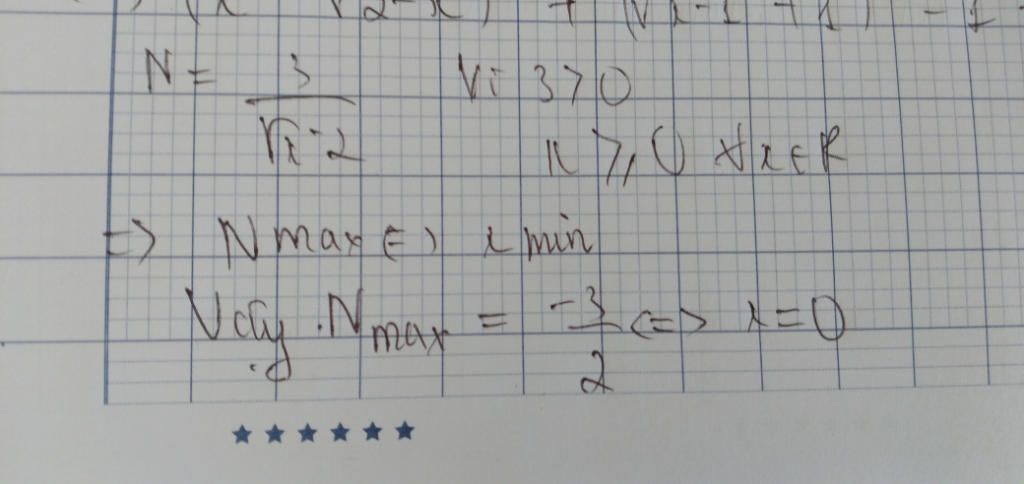 N = 3/(√x - 2) Vì 3 > 0
x ⩾ 0 ∀x ∈ R
=> N max <=> x min
Vậy N max = -3/2 <=> x = 0